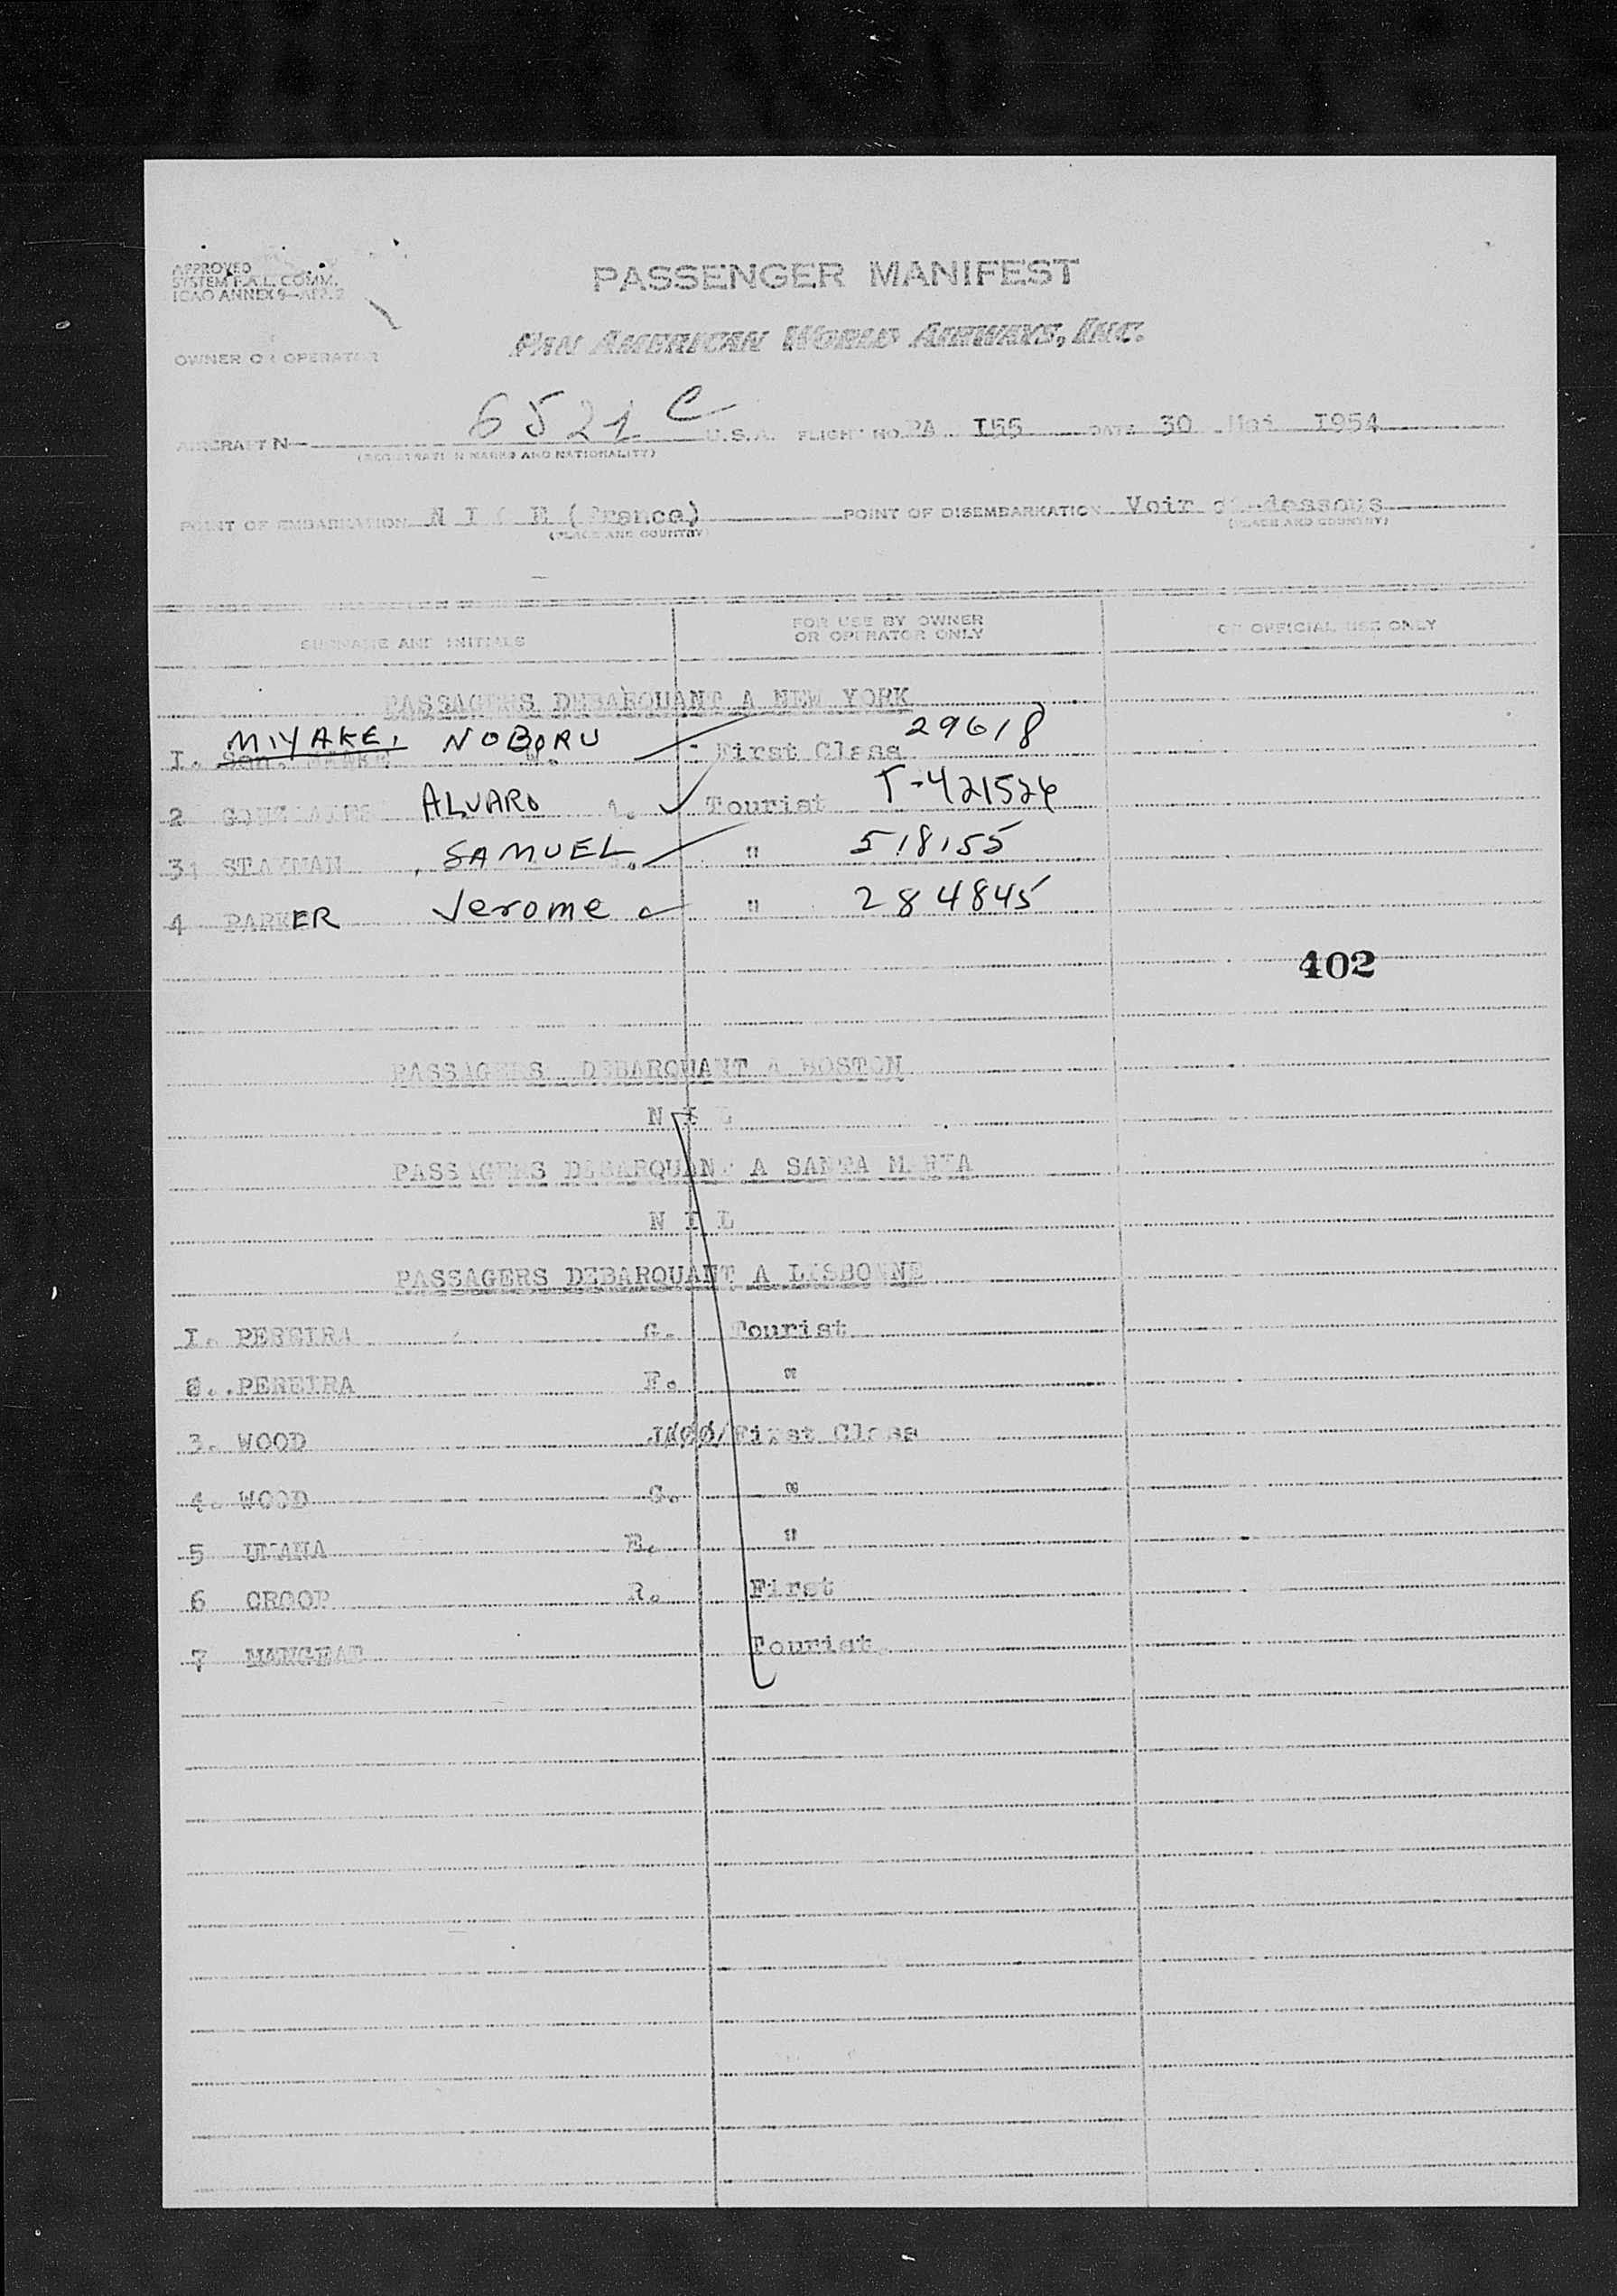 APPROVED
SYSTEM F.A.L. COMM.
ICAO ANNEX 9—APP. 2
PASSENGER MANIFEST
PAN AMERICAN WORLD AIRWAYS, INC.
OWNER OR OPERATOR
AIRCRAFT N— 6521 C U.S.A. FLIGHT NO. PA I55 DATE 30 Mai I954
(REGISTRATION MARKS AND NATIONALITY)
POINT OF EMBARKATION N I C E (France) POINT OF DISEMBARKATION Voir ci-dessous
(PLACE AND COUNTRY) (PLACE AND COUNTRY)
SURNAME AND INITIALS FOR USE BY OWNER OR OPERATOR ONLY FOR OFFICIAL USE ONLY
PASSAGERS DEBARQUANT A NEW YORK
I. MIYAKE, NOBORU First Class 29618
2 ALVARO A. Tourist T-421526
3 SAMUEL " 518155
4 PARKER Jerome " 284845
402
PASSAGERS DEBARQUANT A BOSTON
N I L
PASSAGERS DEBARQUANT A SANTA MARIA
N I L
PASSAGERS DEBARQUANT A LISBONNE
I. PEREIRA G. Tourist
2. PEREIRA F. "
3. WOOD First Class
4. WOOD G. "
5 E. "
6 R. First
7 Tourist